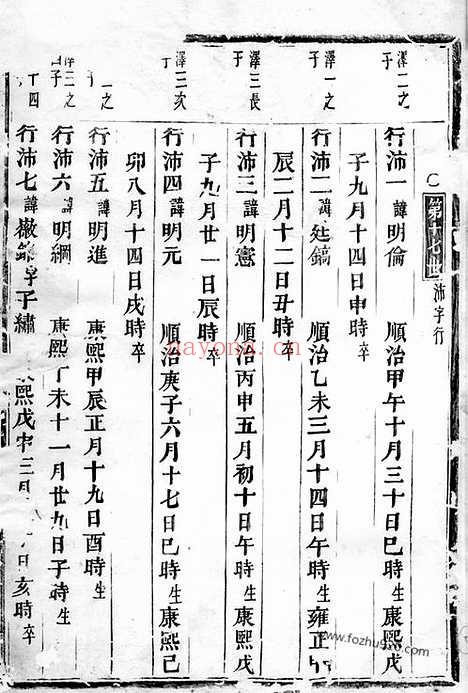 第十七世 沛字行
澤二之子
行沛一諱明倫 順治甲午十月三十日巳時生康熙戊
子九月十四日申時卒
澤一之子
行沛二諱廷鎬 順治乙未三月十四日午時生雍正
辰二月十二日丑時卒
澤三長子
行沛三諱明憲 順治丙申五月初十日午時生康熙戊
子九月廿一日辰時卒
澤三次子
行沛四諱明元 順治庚子六月十七日巳時生康熙己
卯八月十四日戌時卒
一之
行沛五諱明進 康熙甲辰正月十九日酉時生
澤三之
行沛六諱明綱 康熙丁未十一月廿九日子時生
十四
行沛七諱 字子繡 熙戊 三月 亥時卒
dayond.cn
www.fozhu920.com